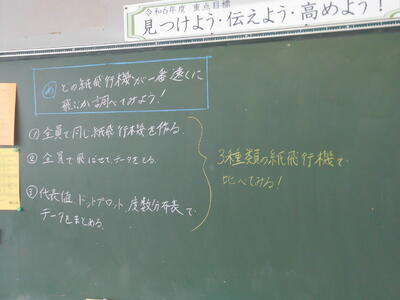 令和6年度 重点目標
見つけよう・伝えよう・高めよう!
め どの紙飛行機が一番遠くに
飛ぶか調べてみよう!
① 全員で同じ紙飛行機を作る。
② 全員で飛ばせて、データをとる。
③ 代表値、ドットプロット、度数分布表で
データをまとめる。
3種類の紙飛行機で
比べてみる!